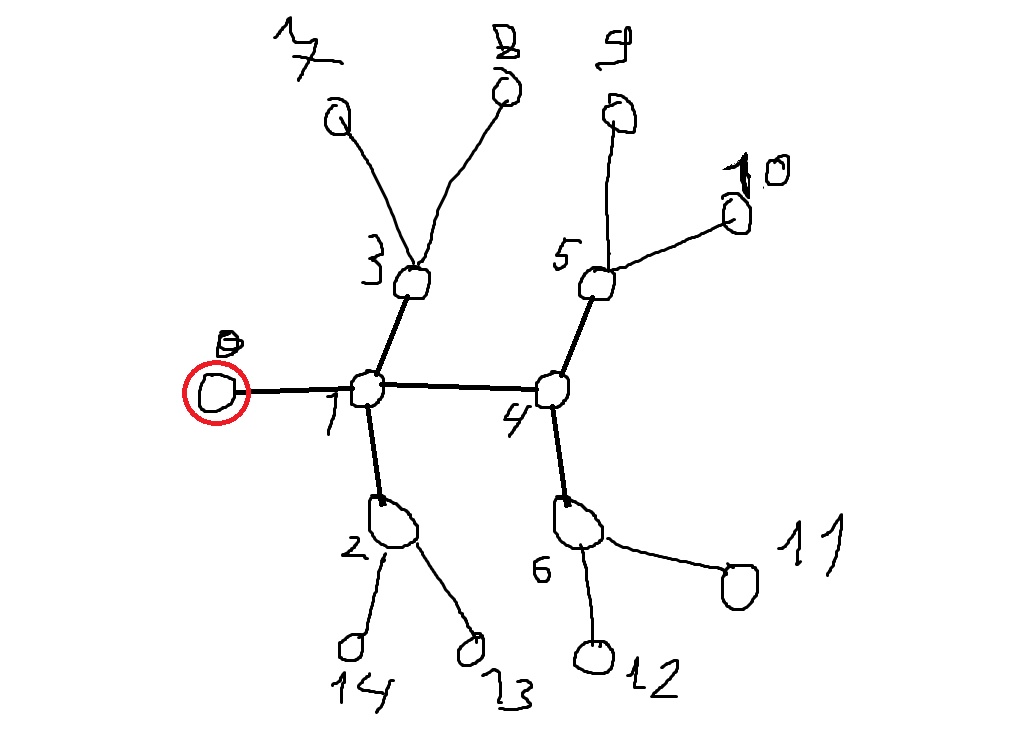 7 8 9
10
3 5
0
1 4
2 6 11
14 13 12